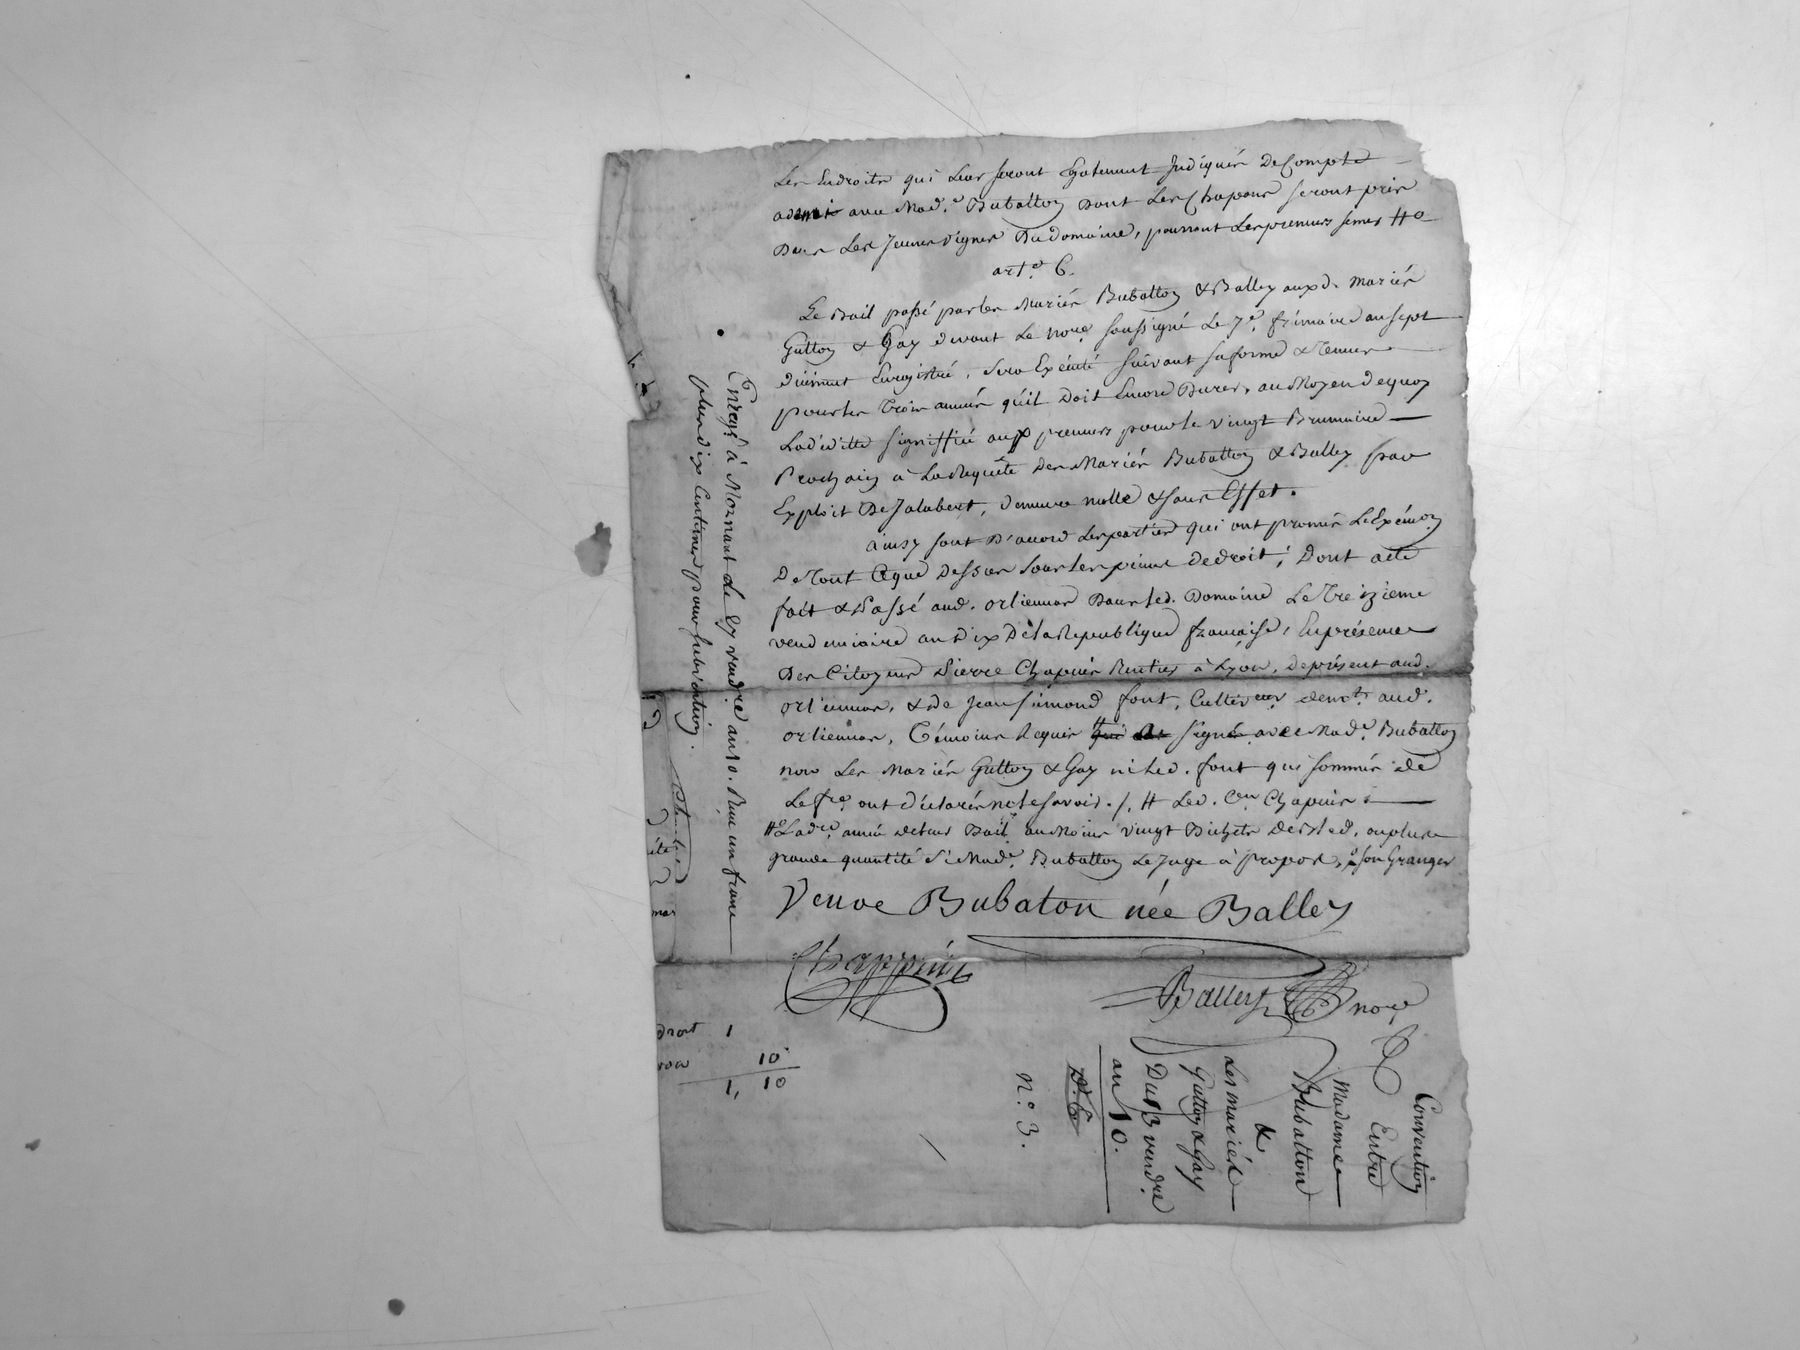 Les Endroits qui Leur seront Egalement Indiqués De Compte
a demi avec Mad.e Bubatton Dont Les Chapons seront pris
Dans Les Jeunes vignes Du domaine, pourront Les preneurs semer #o
art.e 6.
Le Bail passé par les Mariés Bubatton & Balley aux d. mariés
Gutton & Gay devant Le nore soussigné Le 7e. frimaire an sept
duement Enregistré, sera Exécuté suivant sa forme & Teneur
pour les Trois années qu'il Doit Encore Durer, au Moyen de quoy
La déditte signiffiée aux preneurs pour le vingt Brumaire
Prochain a La Requête Des Mariés Bubatton & Balley par
Exploit De Jalabert, demeure nulle & sans Effet.
ainsy sont D'accord Les parties qui ont promis Le Exécuon
De Tout Ceque Dessus sous les peines de droit; Dont acte
fait & Passé aud. orliennas Dans led. Domaine Le Treizieme
vendemiaire an Dix De la Republique française, En présence
Des Citoyens Pierre Chapuis Rentier à Lyon, de présent aud.
orliennas, & de Jean simond font, Cultiveur demt. aud.
orlienas, Témoins Requis # signé avec Made. Bubatton
non Les Mariés Gutton & Gay ni led. font qui sommés de
Le fre. ont déclarés ne le savoir. /. # Led. Cen Chapuis
#o Ladre. année de leur Bail au Moins vingt Bichets De Bled, ou plus
grande quantité si Made. Bubatton Le Juge à propos, po son Granger
Veuve Bubaton née Balley
Chappuis
Balley nore
Enregé à Mornant le 27 vendre. an 10. Reçu un franc
plus dix Centimes pour subvention.
ités
mas
droit 1
10
1, 10
Convention
Entre
Madame
Bubatton
&
Les mariés
Gutton & Gay
Du 13 vendre
an 10.
n.o 3.